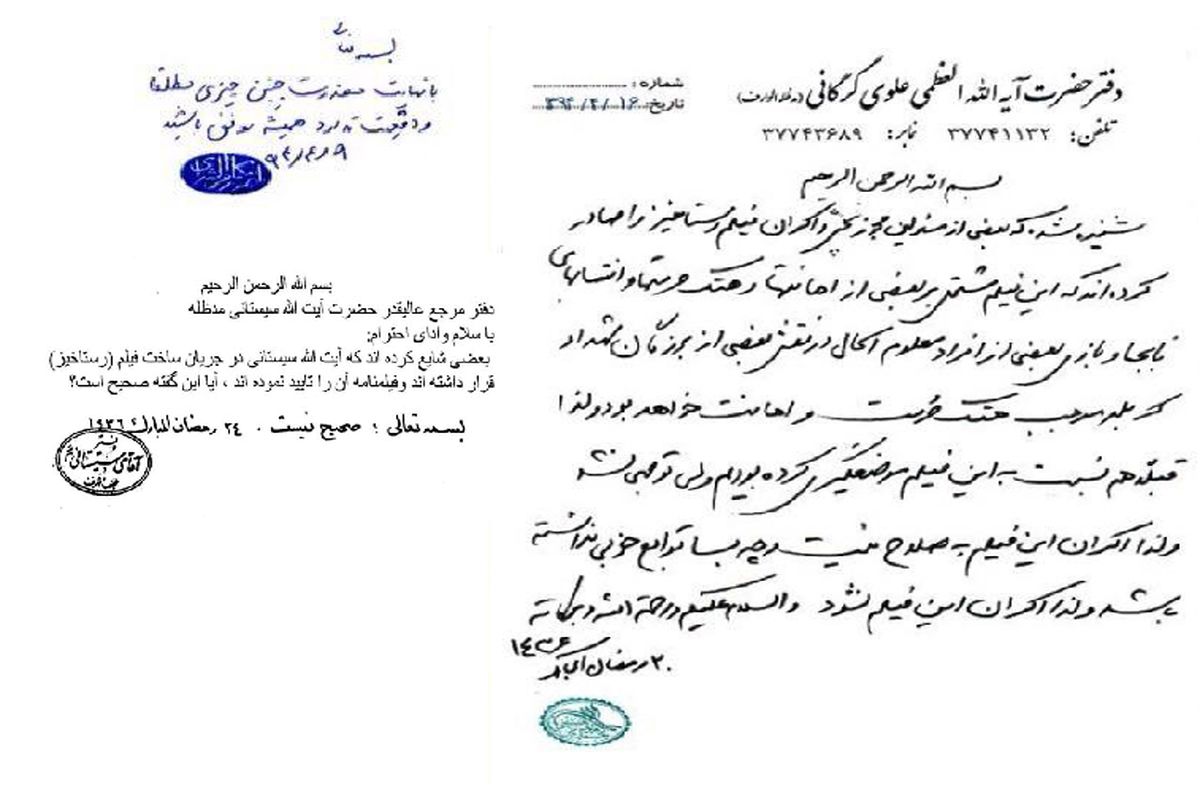 دفتر حضرت آیه الله العظمی علوی گرگانی (مدظله الوارف)
تلفن: ۳۷۷۴۱۱۳۲ نمابر: ۳۷۷۴۳۶۸۹
شماره:
تاریخ: ۳۹۴/۴/۱۶
بسم الله الرحمن الرحیم
شنیده شده که بعضی از مسئولین مجوز پخش و اکران فیلم رستاخیز را صادر
کرده‌اند که این فیلم مشتمل بر بعضی از اهانتها و هتک حرمتها و انتسابهای
نابجا و بازی بعضی از افراد معلوم الحال در نقش بعضی از بزرگان شهداء
کربلا موجب هتک حرمت و اهانت خواهد بود ولذا
قبلاً هم نسبت به این فیلم موضعگیری کرده بودیم ولی توجهی نشد
ولذا اکران این فیلم به صلاح نیست و چه بسا توابع خوبی نداشته
باشد ولذا اکران این فیلم نشود والسلام علیکم ورحمة الله وبرکاته
۲۰ رمضان المبارک ۱۴۳۶
بسمه تعالی
با نهایت معذرت چنین چیزی مطلقا
واقعیت ندارد همیشه موفق باشید
۹۴/۴/۹
بسم الله الرحمن الرحیم
دفتر مرجع عالیقدر حضرت آیت الله سیستانی مدظله
با سلام و ادای احترام;
بعضی شایع کرده اند که آیت الله سیستانی در جریان ساخت فیلم (رستاخیز)
قرار داشته اند وفیلمنامه آن را تایید نموده اند ، آیا این گفته صحیح است؟
بسمه تعالی ؛ صحیح نیست . ۲۴ رمضان المبارك ۱۴۳۶
دفتر
آقای سیستانی